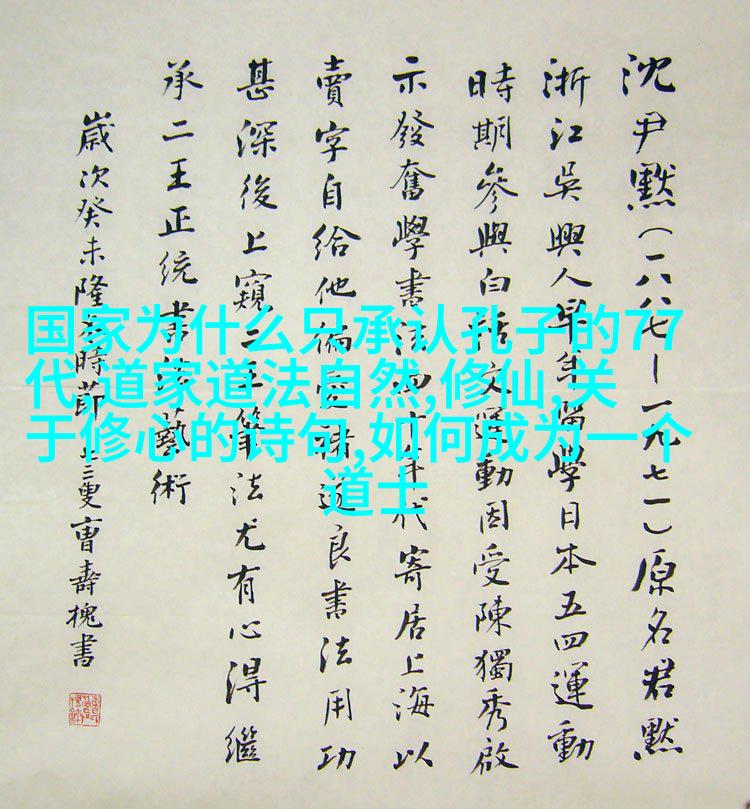 沈尹默(一八八七—一九七一)原名君默
浙江吳興人早年留學日本五四運動
時期參與白話文運動因受陳獨秀啟
示發奮學書法四十年代寄居上海以
賣字自給他偏愛褚遂良書法用功
甚深後上窺二王筆法尤有心得繼
承二王正統書法藝術
歲次癸未隆冬時節三叟曹壽槐書
国家为什么只承认孔子的77
代,道家道法自然,修仙,关
于修心的诗句,如何成为一个
道士